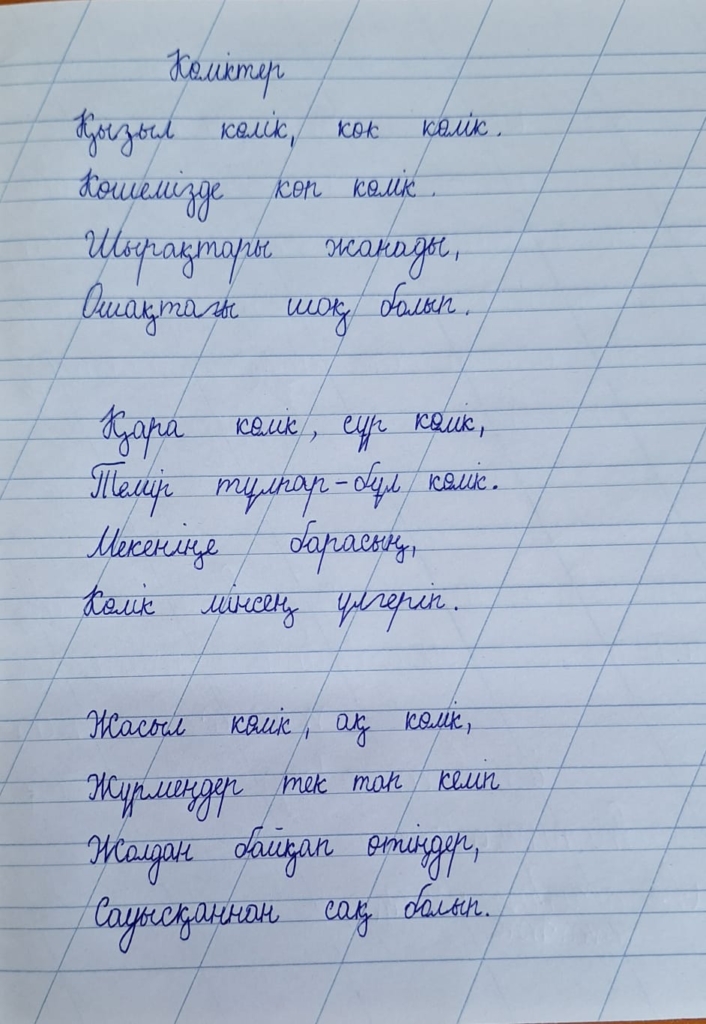 Көліктер
Қызыл көлік, көк көлік.
Көшемізде көп көлік.
Шырақтары жанады,
Ошақтағы шоқ болып.
Қара көлік, сұр көлік,
Темір тұлпар-бұл көлік.
Мекеніңе барасың,
Көлік мінсең үлгеріп.
Жасыл көлік, ақ көлік,
Жүрмеңдер тек тап келіп
Жолдан байқап өтіңдер,
Сауысқаннан сақ болып.